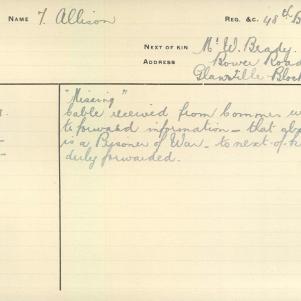 NAME T. Allison
REG. &C. 48th B
NEXT OF KIN Mr W. Brady.
ADDRESS Bower Road
Glanville Block
"Missing"
Cable received from Commrs w
to forward information - that ab
is a Prisoner of War - to next-of-k
duly forwarded.